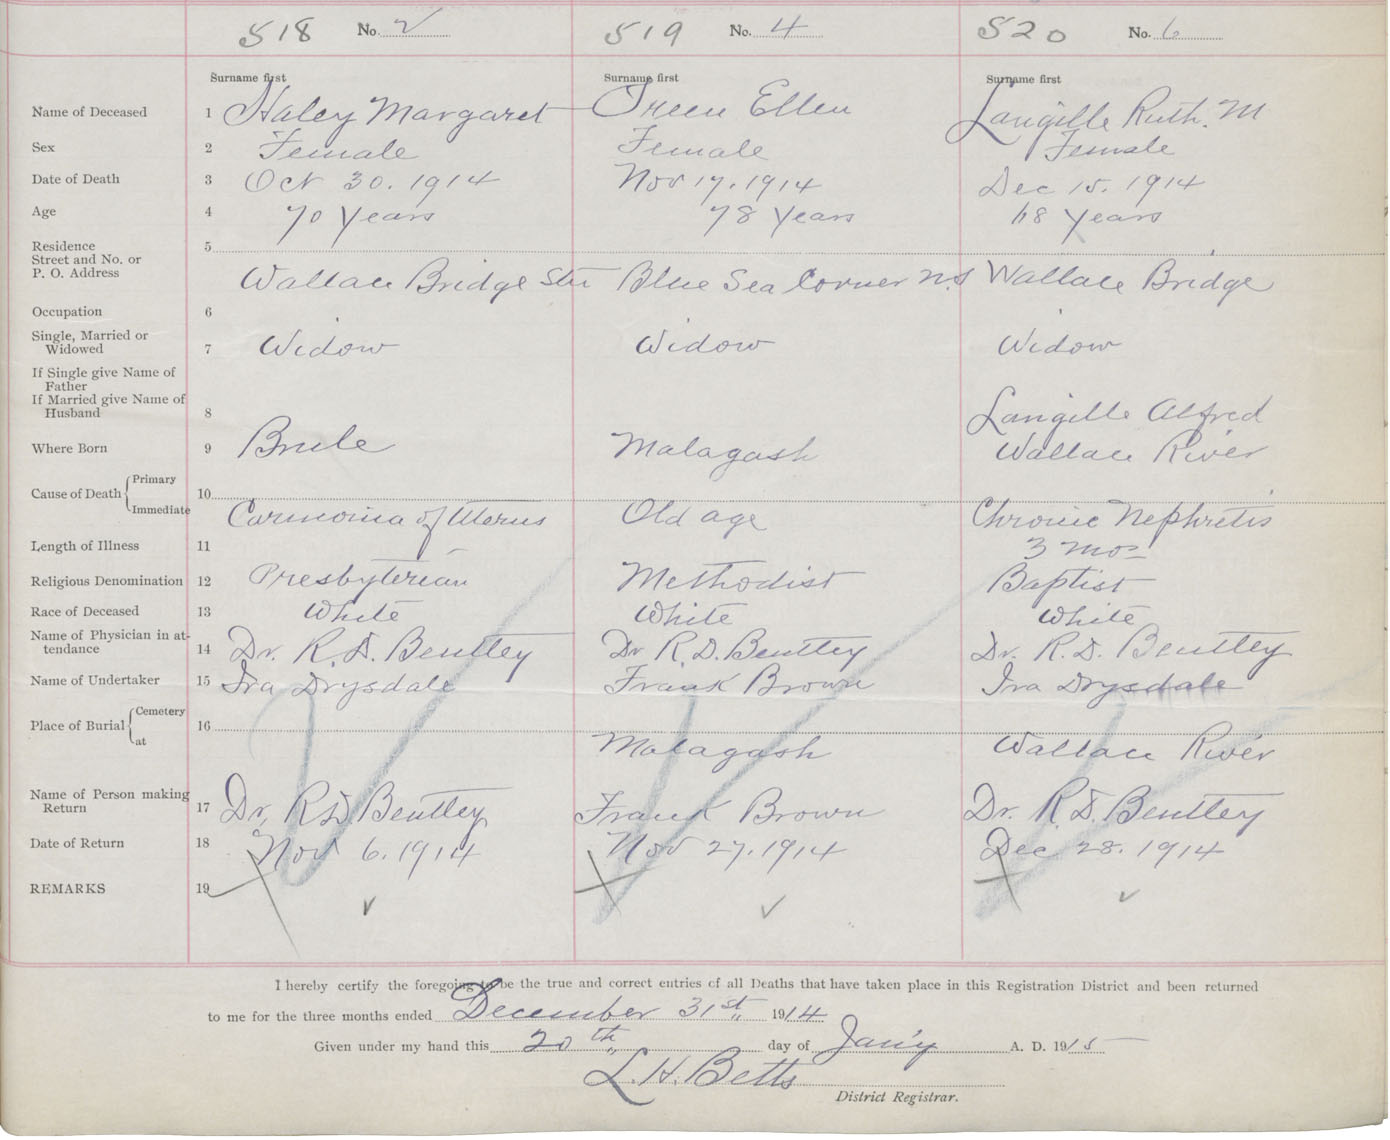 518 No. 2 519 No. 4 520 No. 6
Surname first Surname first Surname first
Name of Deceased 1 Haley Margaret Treen Ellen Langille Ruth. M
Sex 2 Female Female Female
Date of Death 3 Oct 30. 1914 Nov 17. 1914 Dec 15. 1914
Age 4 70 Years 78 Years 68 Years
Residence
Street and No. or
P. O. Address 5 Wallace Bridge Stn Blue Sea Corner N.S Wallace Bridge
Occupation 6
Single, Married or
Widowed 7 Widow Widow Widow
If Single give Name of
Father
If Married give Name of
Husband 8 Langille Alfred
Where Born 9 Brule Malagash Wallace River
Cause of Death Primary
Immediate 10 Carcinoma of Uterus Old age Chronic Nephretis
Length of Illness 11 3 mos
Religious Denomination 12 Presbyterian Methodist Baptist
Race of Deceased 13 White White White
Name of Physician in at-
tendance 14 Dr. R. D. Bentley Dr R. D. Bentley Dr. R. D. Bentley
Name of Undertaker 15 Ira Drysdale Frank Brown Ira Drysdale
Place of Burial Cemetery
at 16 Malagash Wallace River
Name of Person making
Return 17 Dr. R. D. Bentley Frank Brown Dr. R. D. Bentley
Date of Return 18 Nov 6. 1914 Nov 27. 1914 Dec 28. 1914
REMARKS 19
I hereby certify the foregoing to be the true and correct entries of all Deaths that have taken place in this Registration District and been returned
to me for the three months ended December 31st 1914
Given under my hand this 20th day of Jan'y A. D. 1915
L. H. Betts
District Registrar.